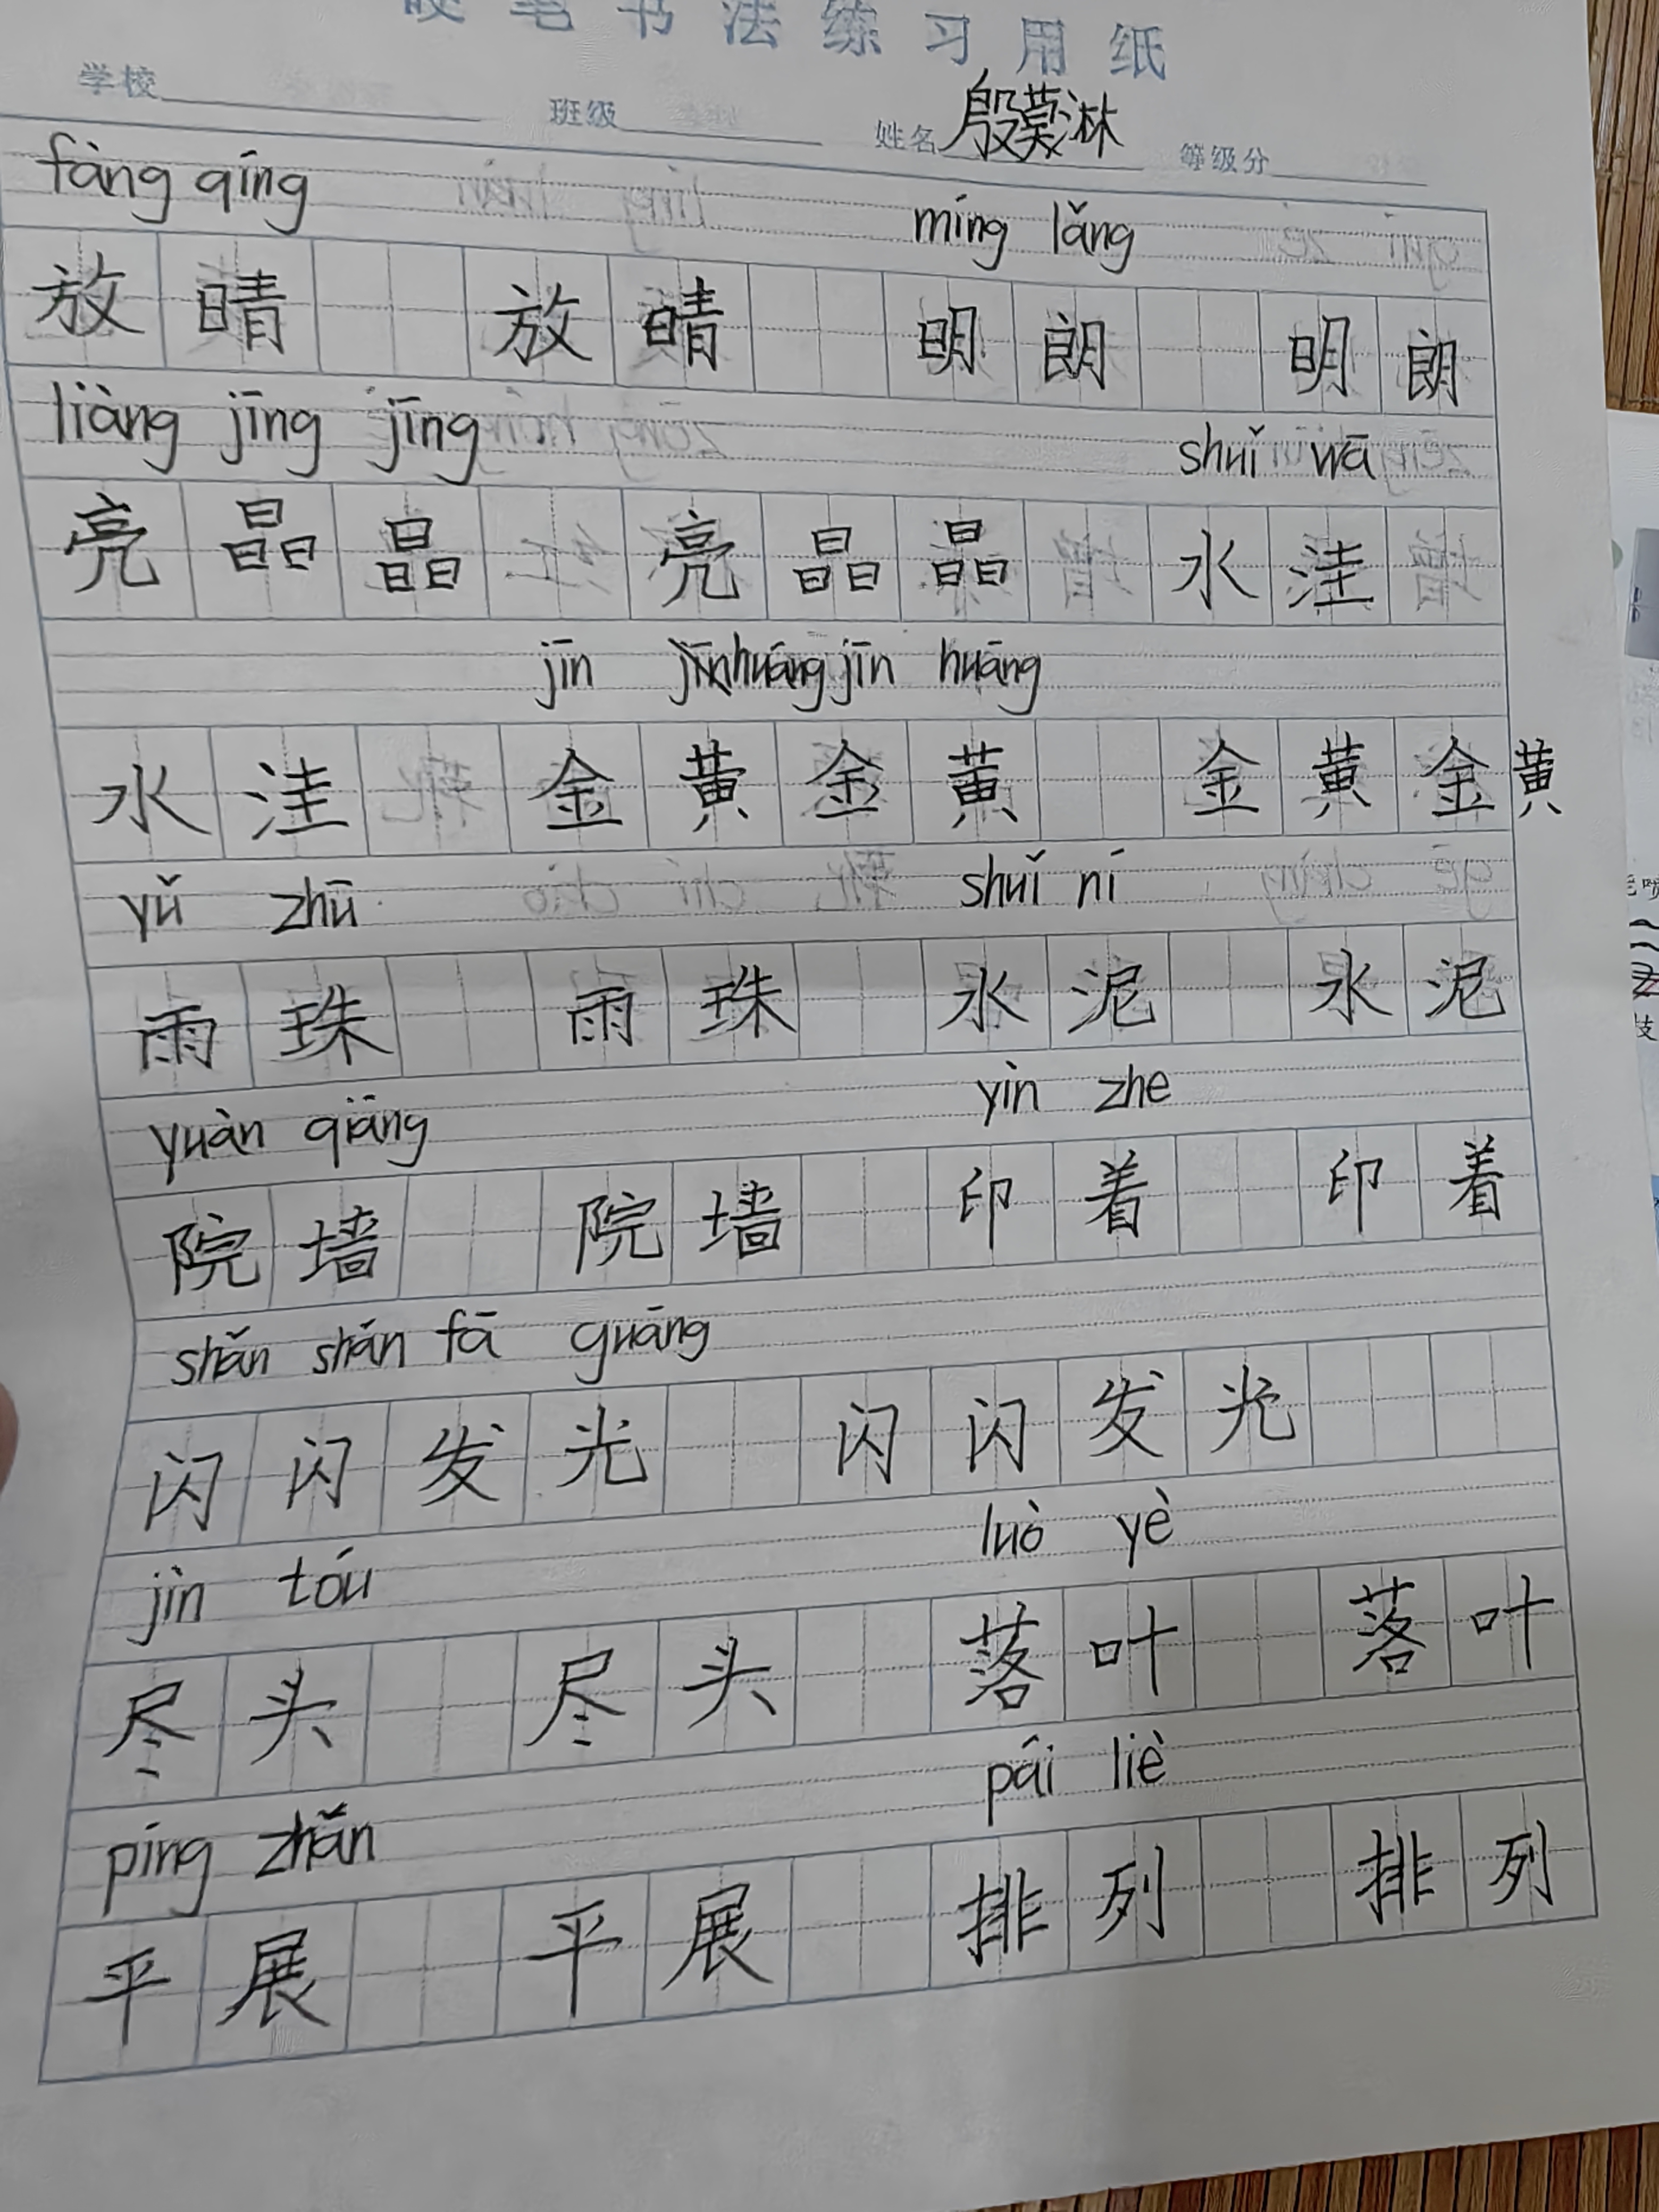 硬笔书法练习用纸
学校 班级 姓名 殷萣淋 等级分
fàng qíng míng lǎng
放晴 放晴 明朗 明朗
liàng jīng jīng shuǐ wā
亮晶晶 亮晶晶 水洼
jīn huáng jīn huáng
水洼 金黄金黄 金黄金黄
yǔ zhū shuǐ ní
雨珠 雨珠 水泥 水泥
yuàn qiáng yìn zhe
院墙 院墙 印着 印着
shǎn shǎn fā guāng
闪闪发光 闪闪发光
jìn tóu luò yè
尽头 尽头 落叶 落叶
píng zhǎn pái liè
平展 平展 排列 排列